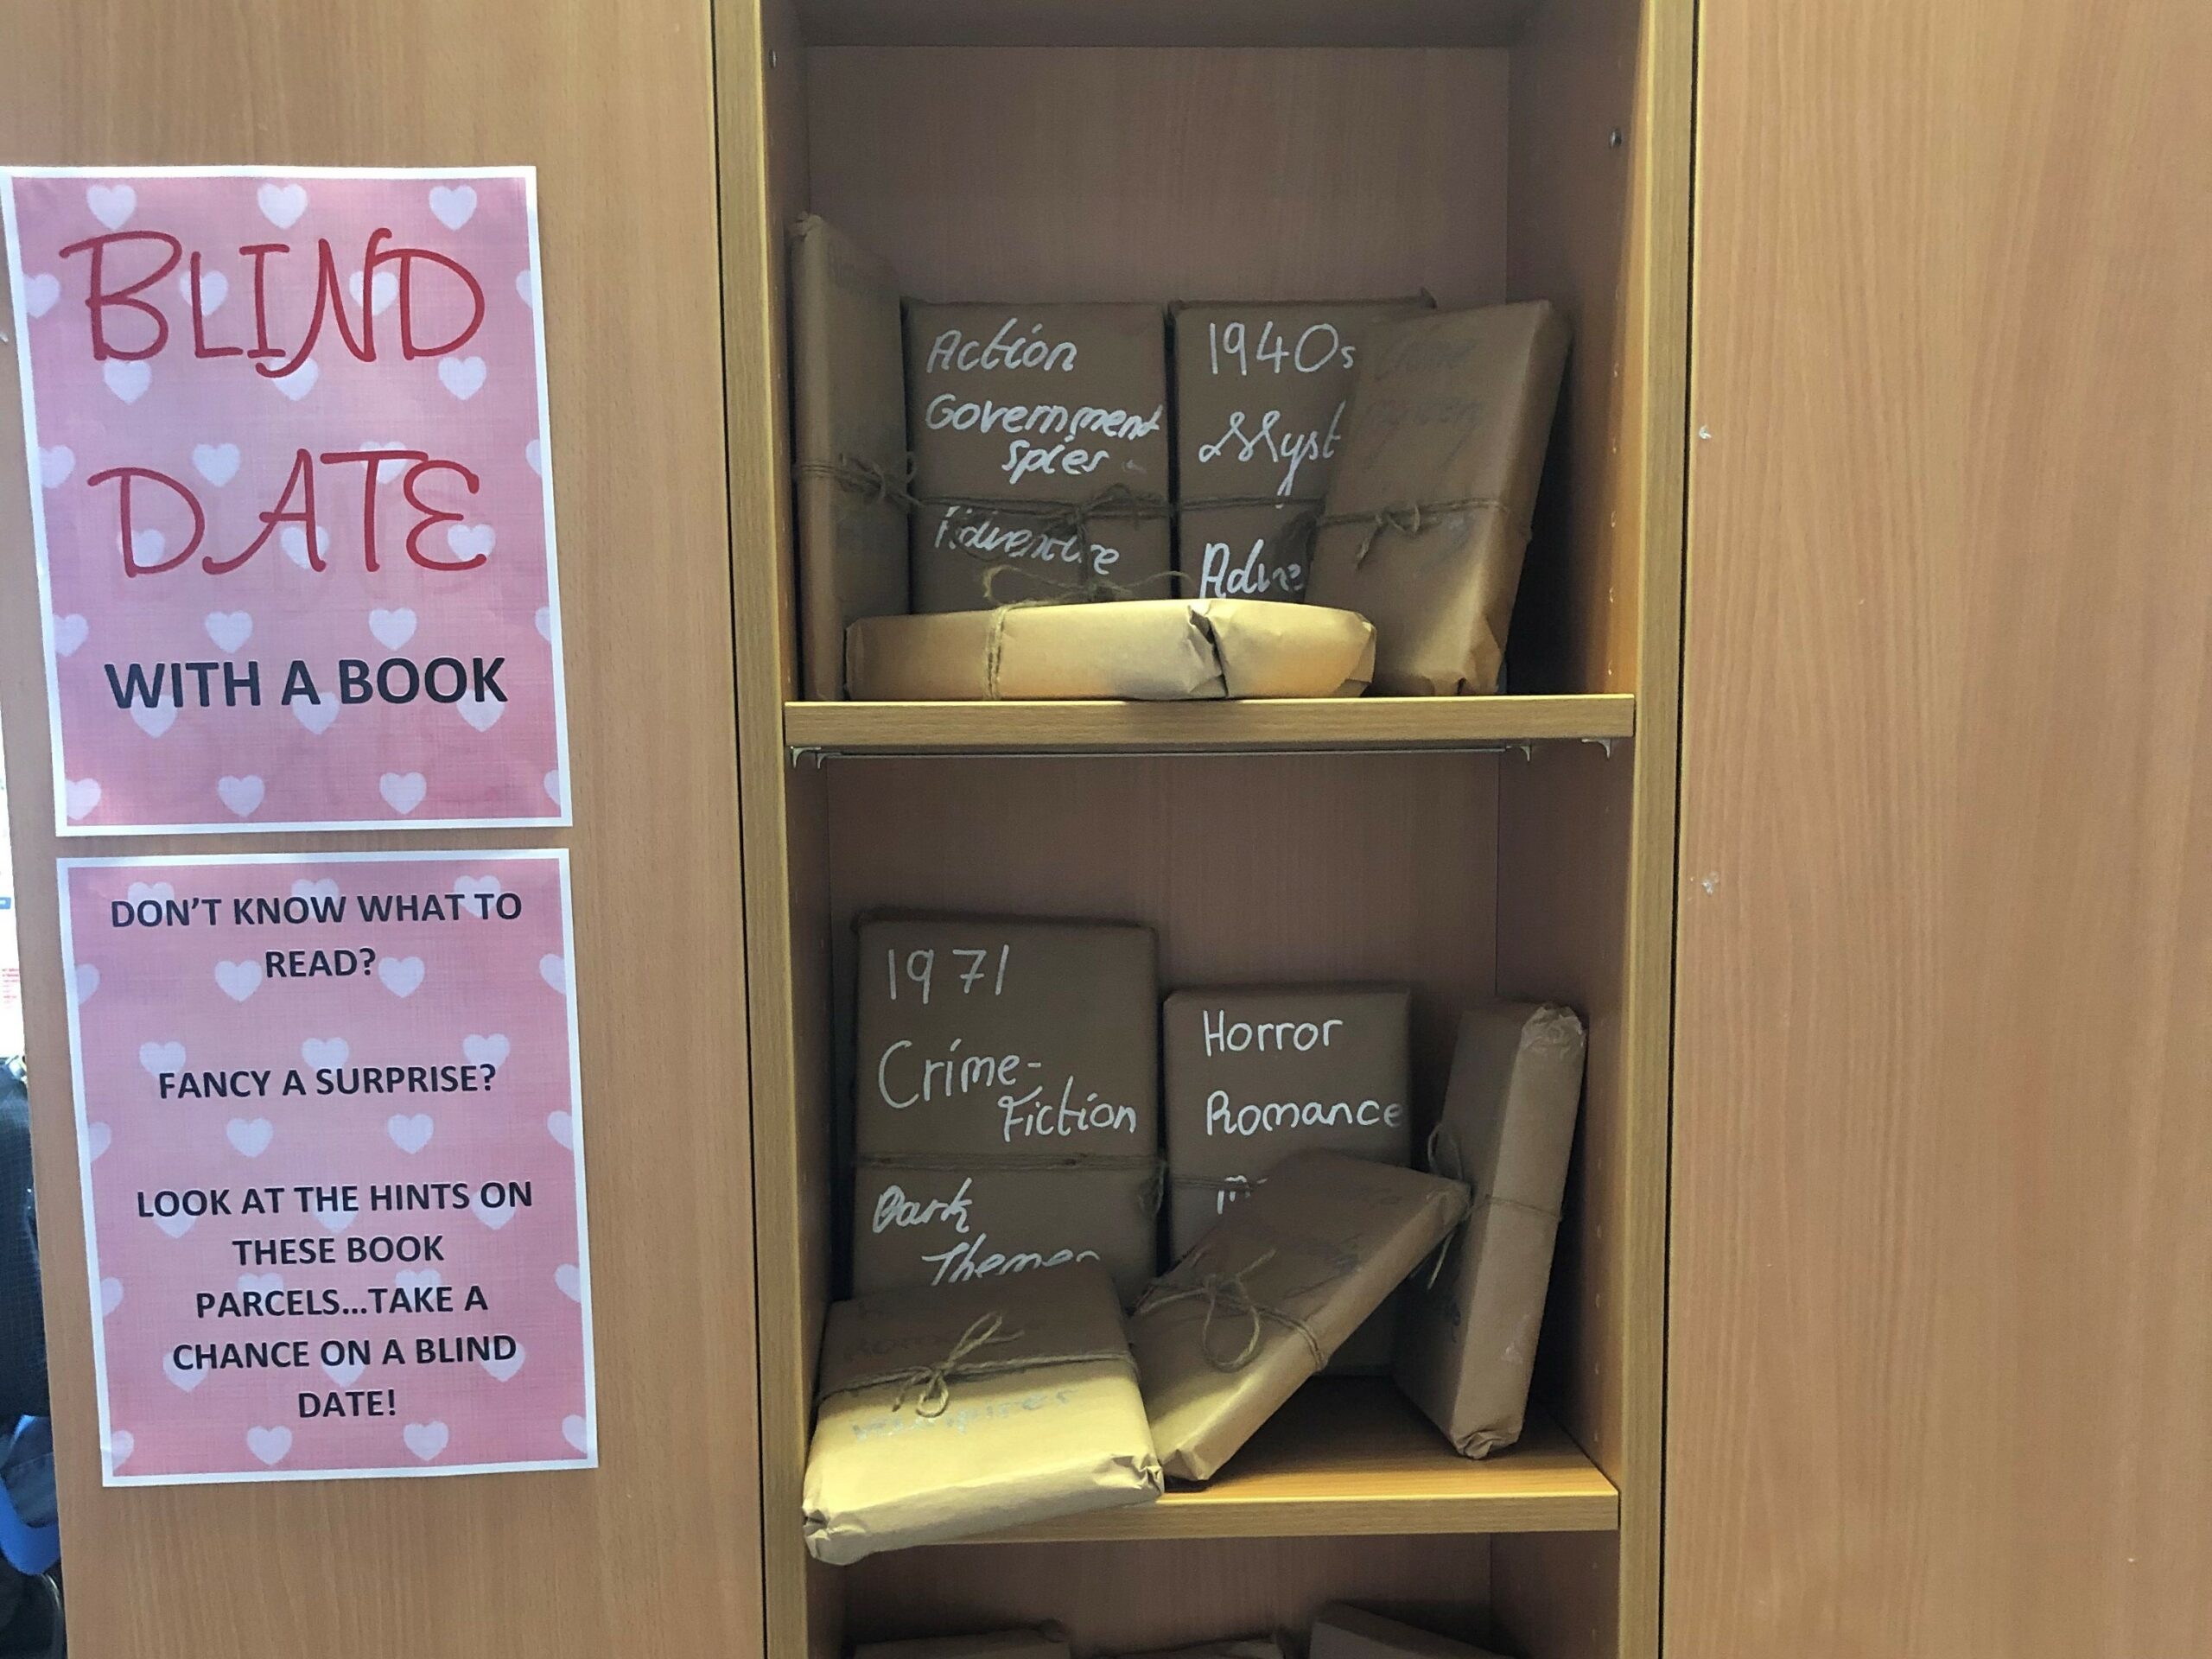 BLIND
DATE
WITH A BOOK
DON'T KNOW WHAT TO
READ?
FANCY A SURPRISE?
LOOK AT THE HINTS ON
THESE BOOK
PARCELS...TAKE A
CHANCE ON A BLIND
DATE!
Action
Government
Spies
Adventure
1940s
Myst
Adve
Crime
1971
Crime-
Fiction
Dark
Themes
Horror
Romance
Vampires